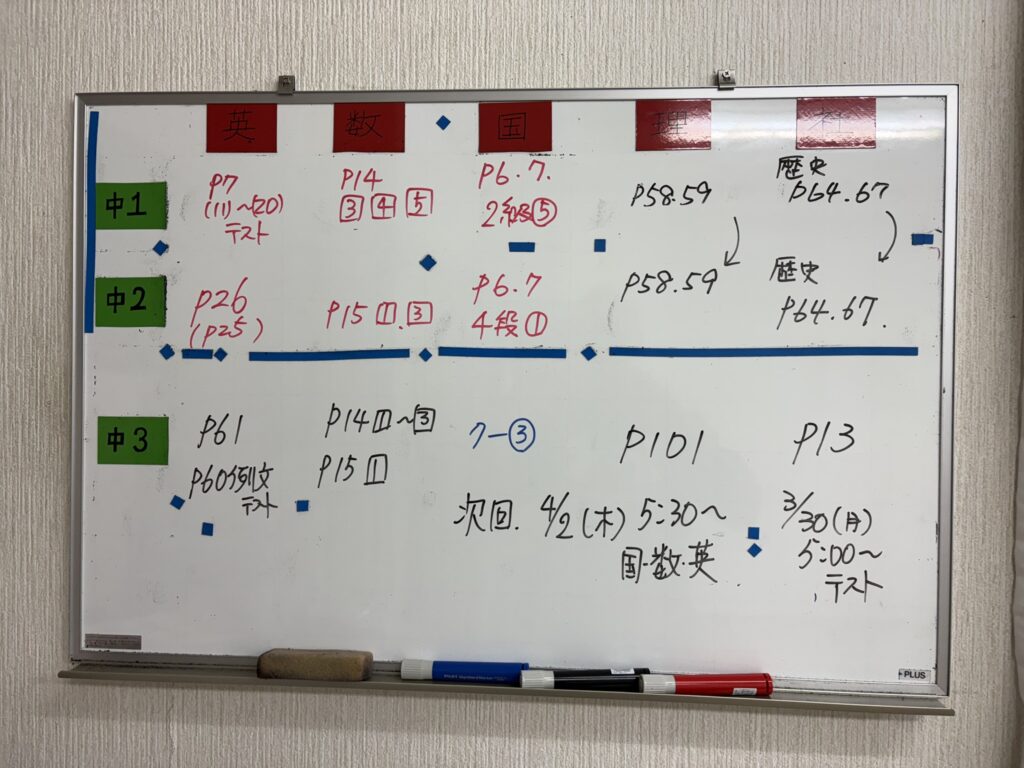 英 数 国 理 社
中1
P7
(11)~(20)
テスト
P14
3 4 5
P6.7.
2級⑤
P58.59
歴史
P64.67
中2
P26
(P25)
P15 1.3
P6.7
4段①
P58.59
歴史
P64.67.
中3
P61
P60例文
テスト
P14 1~3
P15 1
7-③
P101
P13
次回. 4/2(木) 5:30~
国・数・英
3/30(月)
5:00~
テスト
PLUS